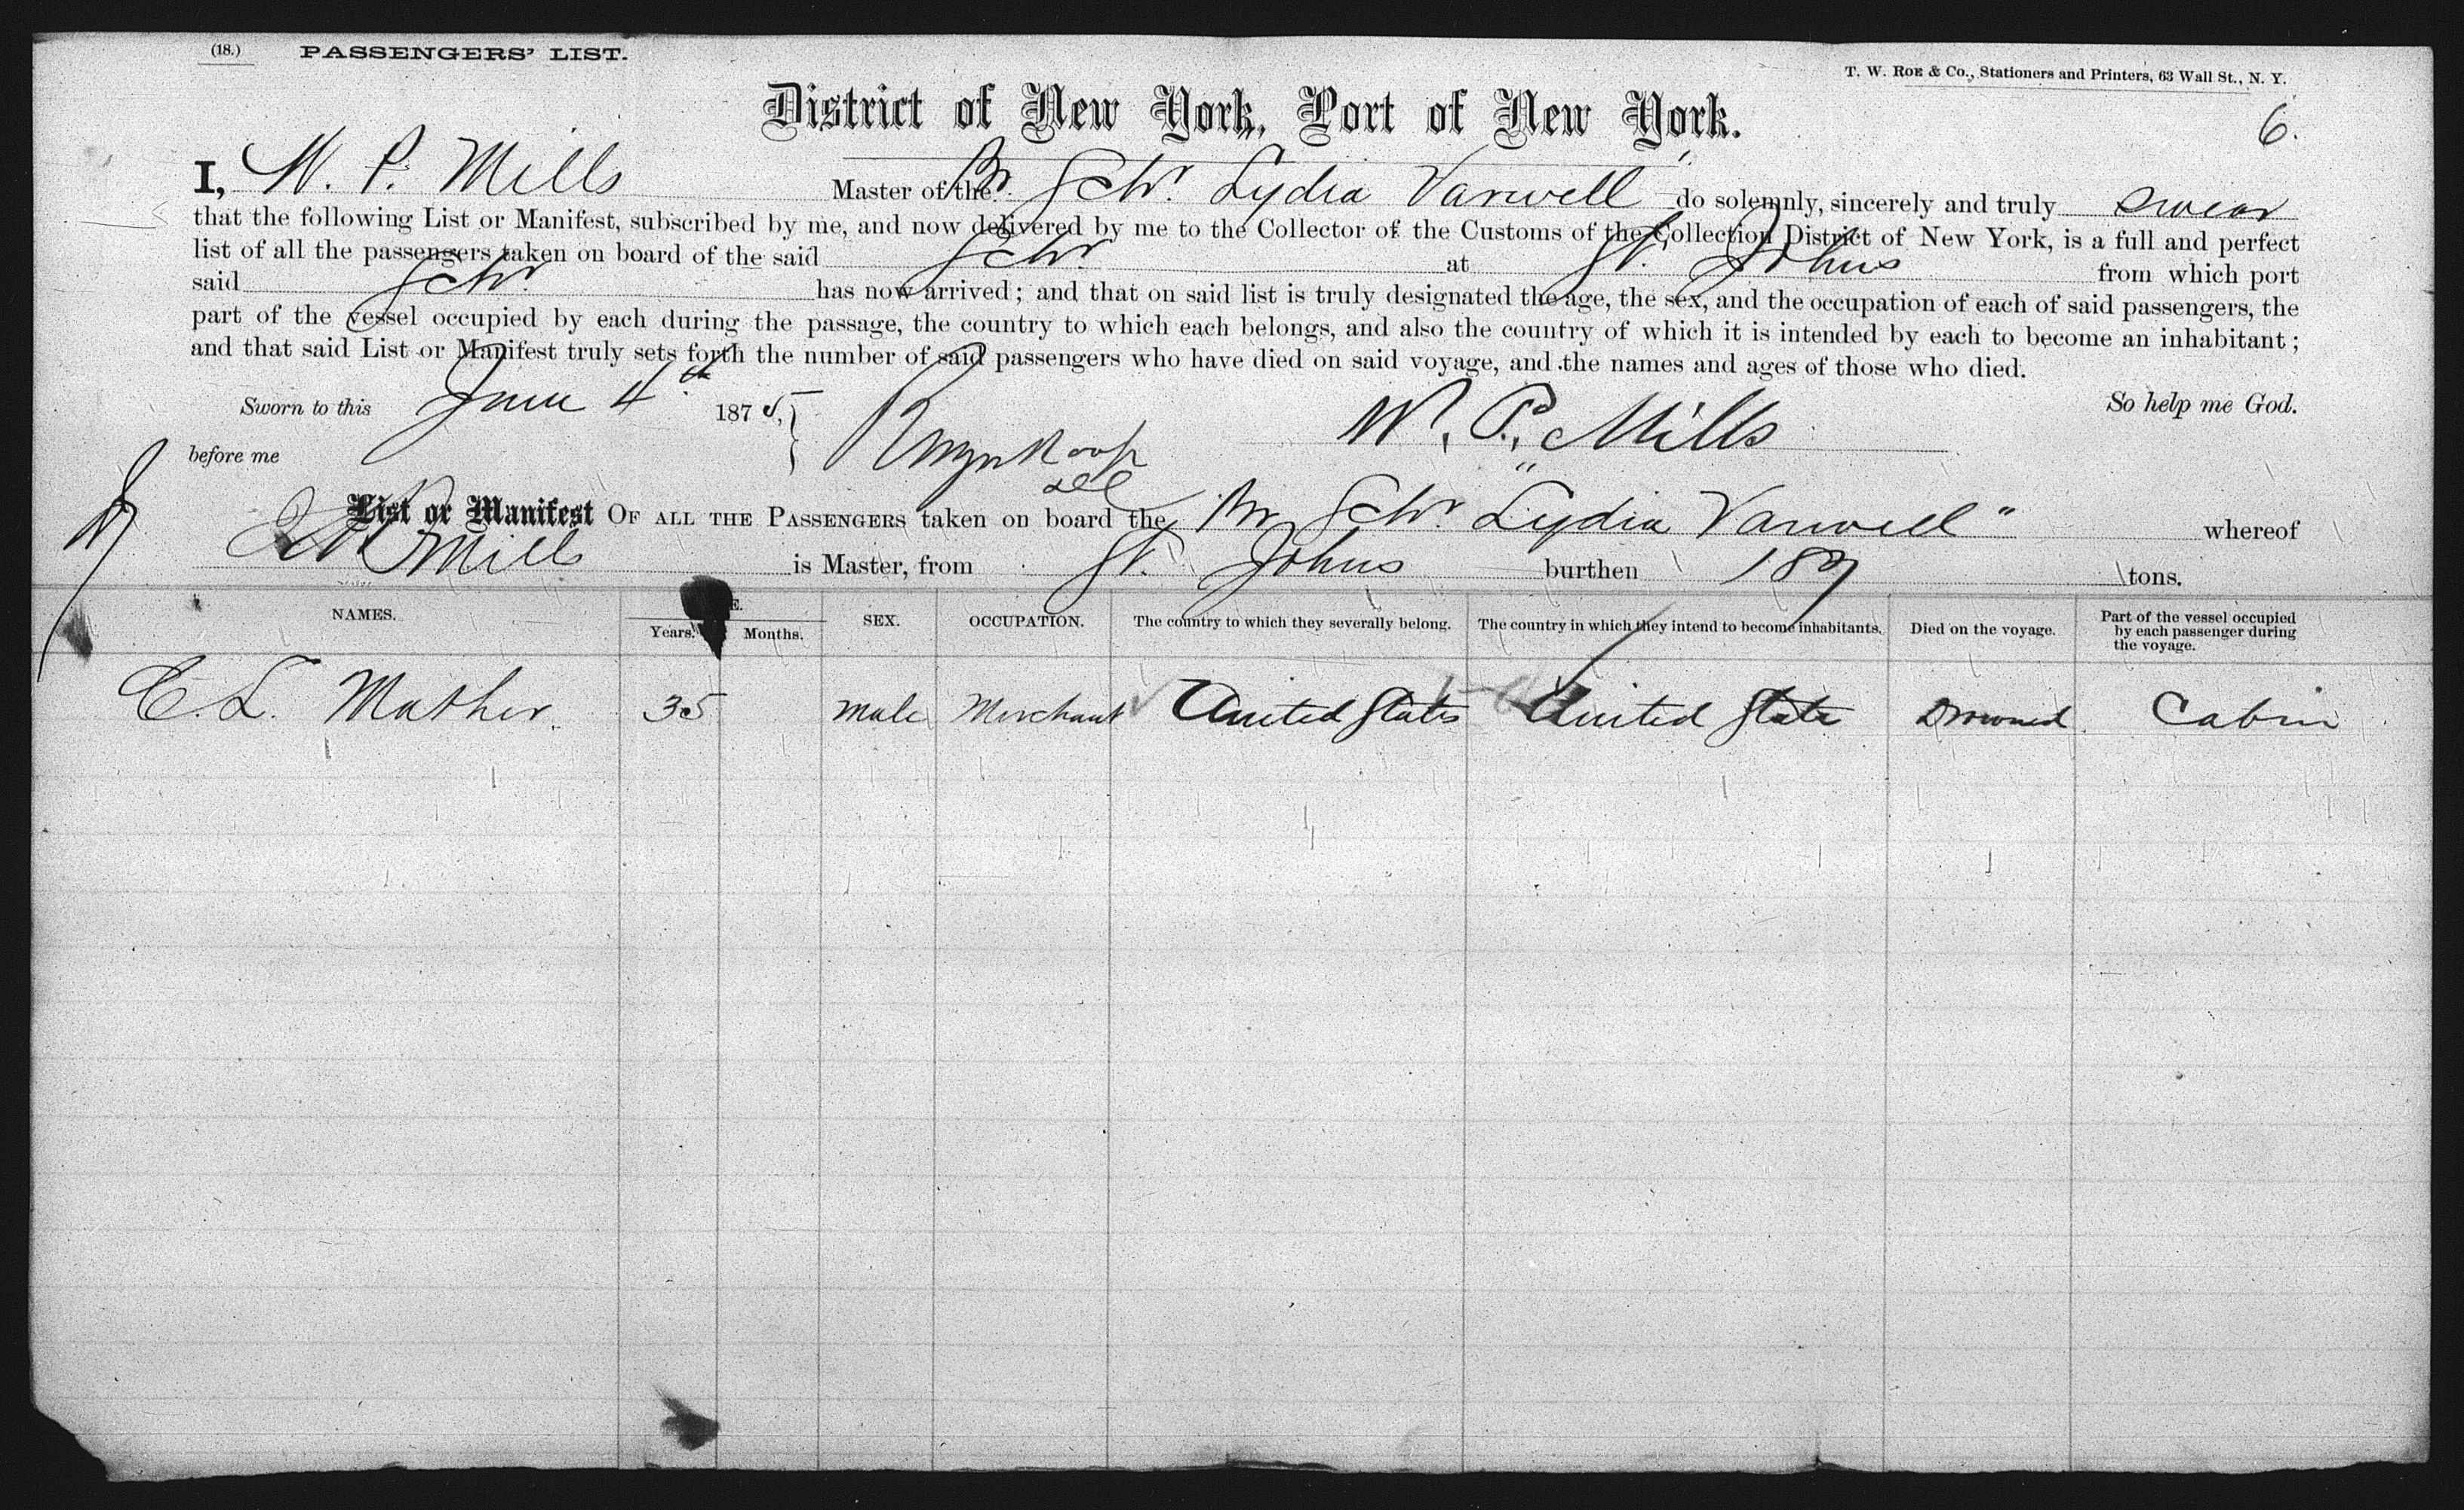 (18.) PASSENGERS' LIST.
T. W. ROE & Co., Stationers and Printers, 63 Wall St., N. Y.
District of New York, Port of New York.
6.
I, W. P. Mills Master of the Br Schr. Lydia Varwell do solemnly, sincerely and truly swear
that the following List or Manifest, subscribed by me, and now delivered by me to the Collector of the Customs of the Collection District of New York, is a full and perfect
list of all the passengers taken on board of the said Schr. at St. Johns from which port
said Schr. has now arrived; and that on said list is truly designated the age, the sex, and the occupation of each of said passengers, the
part of the vessel occupied by each during the passage, the country to which each belongs, and also the country of which it is intended by each to become an inhabitant;
and that said List or Manifest truly sets forth the number of said passengers who have died on said voyage, and the names and ages of those who died.
Sworn to this June 4th 1875, W. P. Mills So help me God.
before me
List or Manifest OF ALL THE PASSENGERS taken on board the Br Schr. "Lydia Varwell" whereof
Mills is Master, from St. Johns burthen 189 tons.
NAMES. Years. Months. SEX. OCCUPATION. The country to which they severally belong. The country in which they intend to become inhabitants. Died on the voyage. Part of the vessel occupied by each passenger during the voyage.
C. L. Mather. 35 Male Merchant United States United States Drowned Cabin